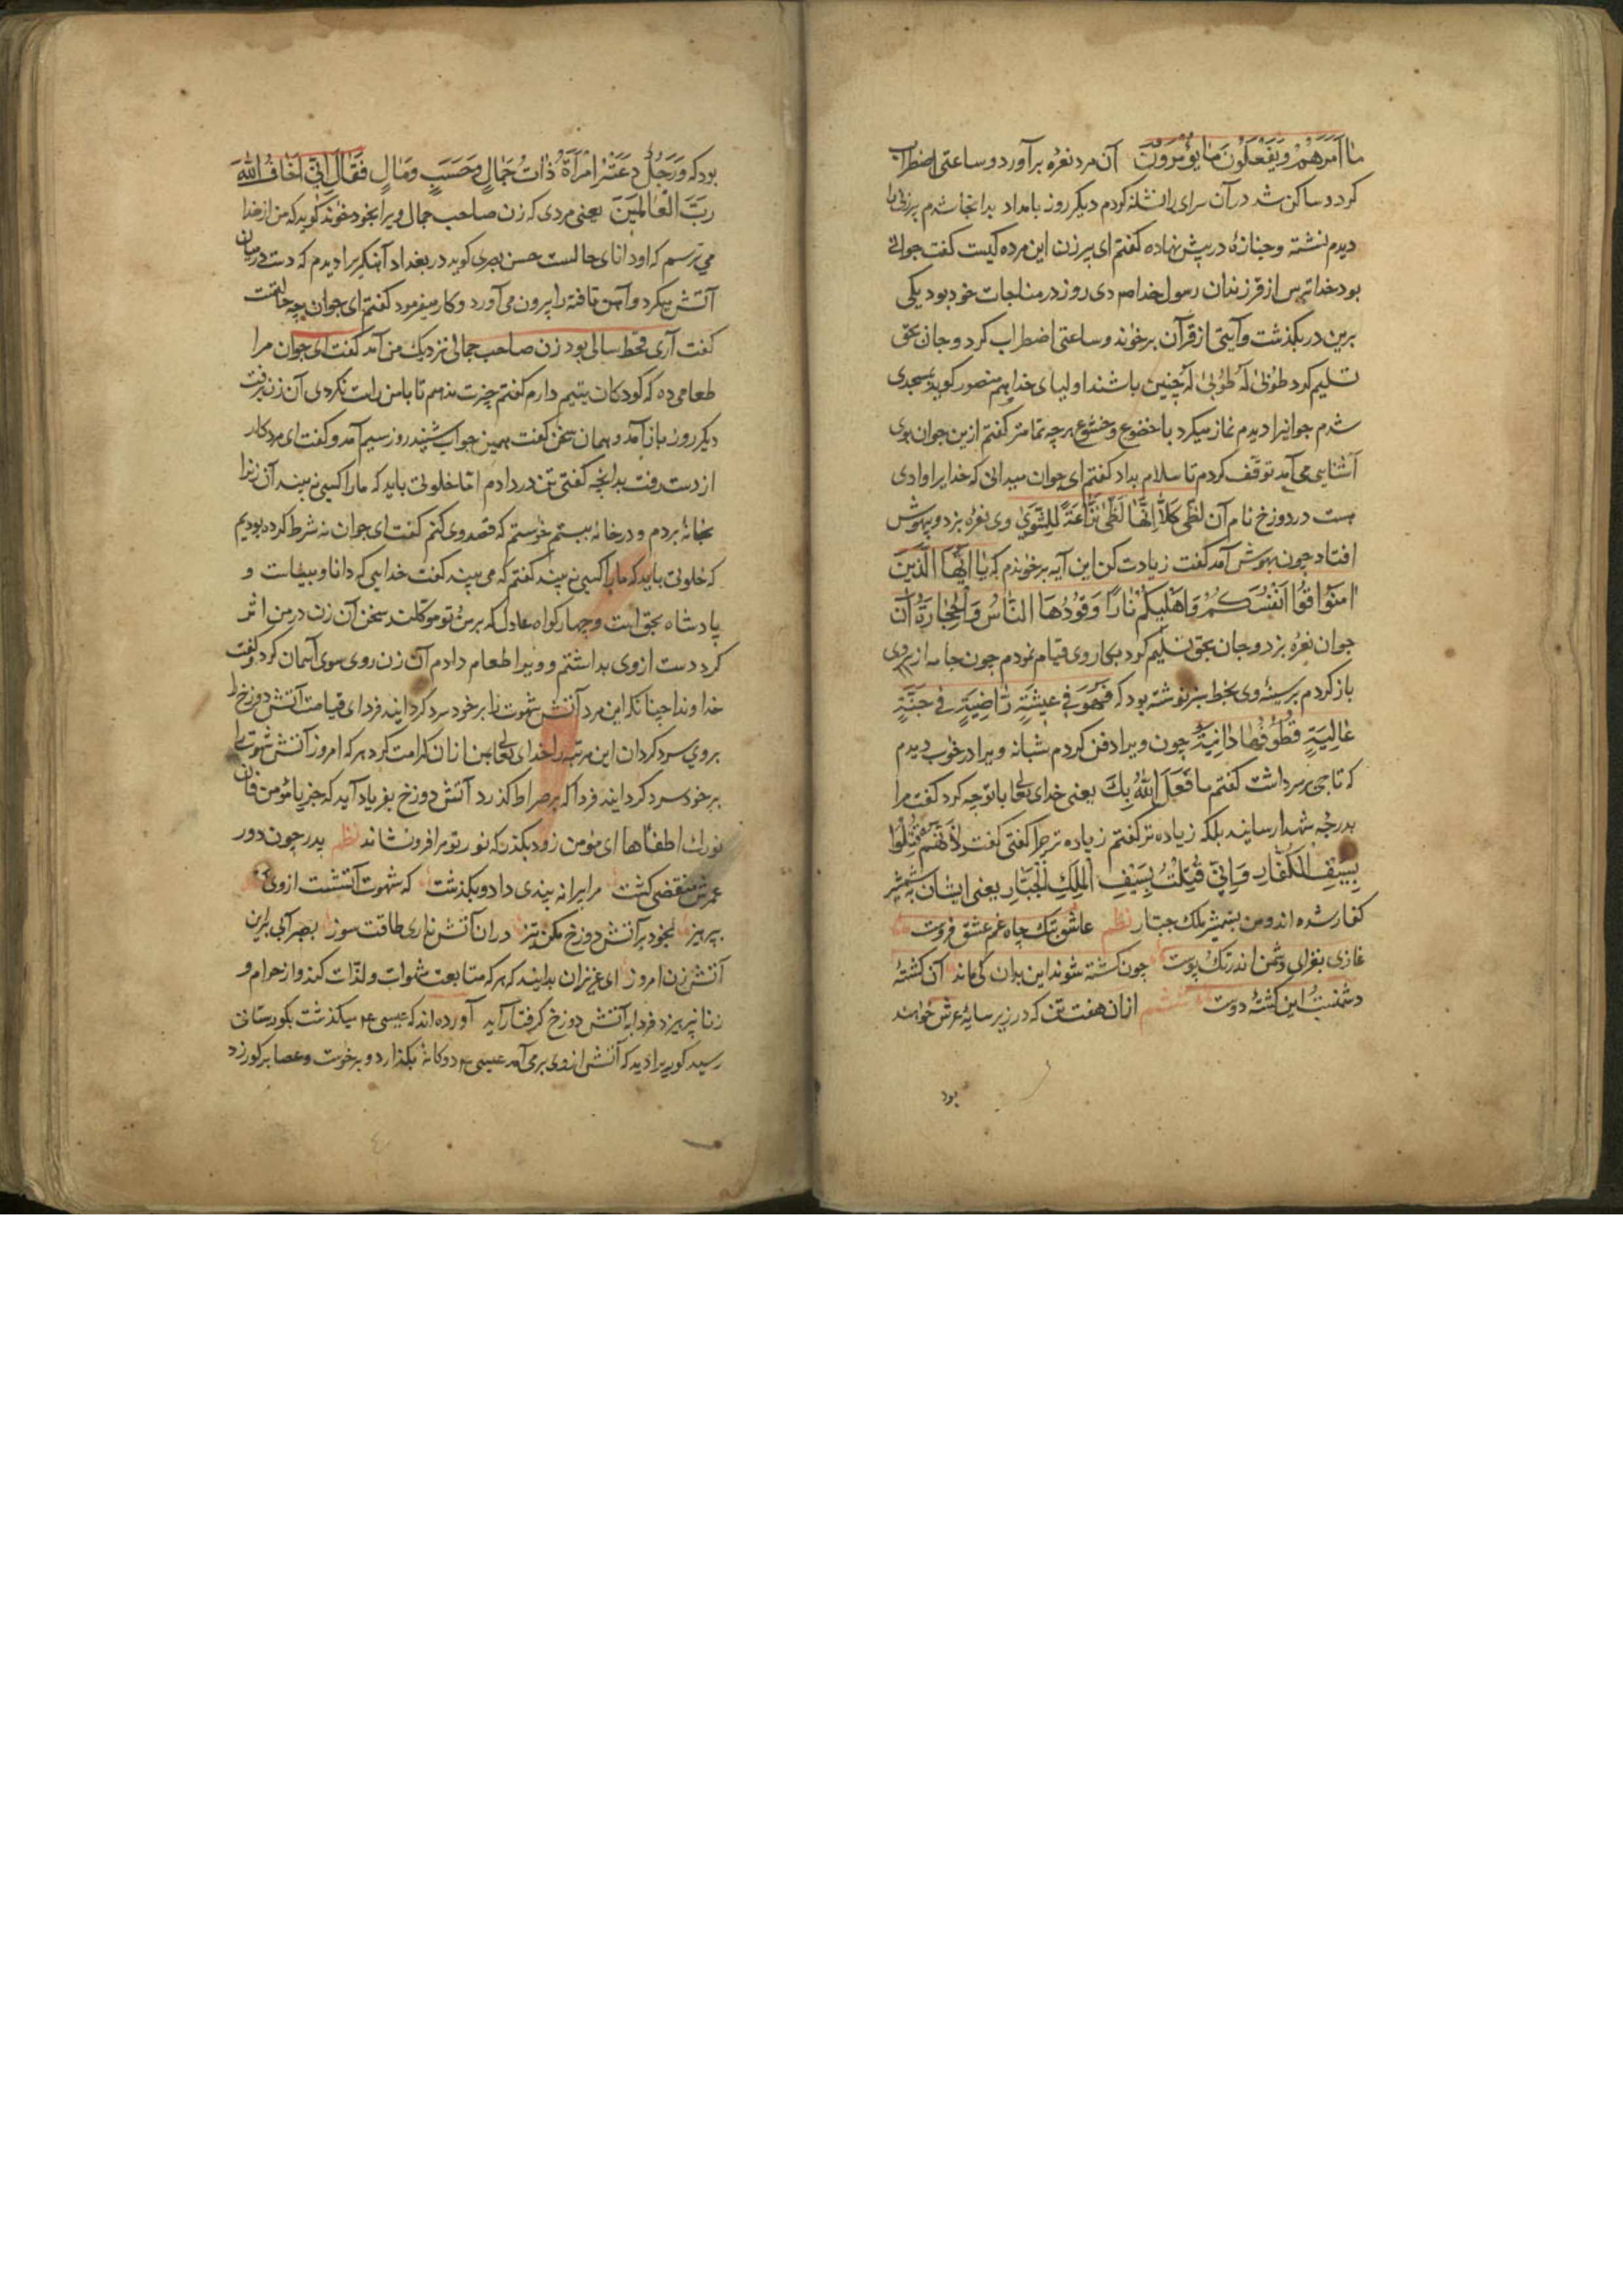 ما اَمَرَهُمْ وَيَفْعَلُونَ مٰا يُؤْمَرُونَ آن مرد نعره برآورد و ساعتی اضطراب
کرد و ساکن شد در آن سرای را نشانه کردم دیگر روز بامداد بدانجا شدم پیرزنی را
دیدم نشسته و جنازهٔ در پیش نهاده گفتم ای پیرزن این مرده کیست گفت جوانی
بود خداترس از فرزندان رسول خدا ص دی روز در مناجات خود بود یکی
برین در بگذشت و آیتی از قرآن برخواند و ساعتی اضطراب کرد و جان بحق
تسلیم کرد طُوبٰی لَهُ طُوبٰی لَهُ چنین باشند اولیای خدا هم منصور گوید بمسجدی
شدم جوانیرا دیدم نماز میکرد با خضوع و خشوع هرچه تمامتر گفتم ازین جوان بوی
آشنایی می آید توقف کردم تا سلام بداد گفتم ای جوان میدانی که خدایرا وادی
هست در دوزخ نام آن لظی کَلاّٰ اِنَّهٰا لَظٰی نَزّٰاعَةً لِلشَّوٰی وی نعره بزد و بیهوش
افتاد چون بهوش آمد گفت زیادت کن این آیه برخواندم که یٰا اَیُّهَا الَّذینَ
اٰمَنُوا قُوا اَنْفُسَکُمْ وَاَهْلیکُمْ نٰارًا وَقُودُهَا النّٰاسُ وَالْحِجٰارَةُ آن
جوان نعره بزد و جان بحق تسلیم کرد بکار وی قیام نمودم چون جامه از بر وی
باز کردم بر سینهٔ وی بخط سبز نوشته بود که فَهُوَ فی عیشَةٍ رٰاضِیَةٍ فی جَنَّةٍ
عٰالِیَةٍ قُطُوفُهٰا دٰانِیَةٌ چون ویرا دفن کردم شبانه ویرا در خواب دیدم
که تاجی بر سر داشت گفتم ما فَعَلَ اللّٰهُ بِكَ یعنی خدای تعالی با تو چه کرد گفت مرا
بدرجهٔ شهدا رسانید بلکه زیاده تر گفتم زیاده تر چرا گفتی گفت لِاَنَّهُمْ قُتِلُوا
بِسَیْفِ الْکُفّٰارِ وَاِنّی قُتِلْتُ بِسَیْفِ الْمَلِكِ الْجَبّٰارِ یعنی ایشان بشمشیر
کفار شده اند و من بشمشیر ملك جبّار نظم عاشق بتك چاه غم عشق فروست
غازی بغزای دشمن اندر تك پوست چون کشته شوند این بدان کی ماند آن کشتهٔ
دشمنست این کشتهٔ دوست ششم از آن هفت تن که در زیر سایهٔ عرش خواهند
بود
بود که وَرَجُلٌ دَعَتْهُ امْرَأَةٌ ذٰاتُ جَمٰالٍ وَحَسَبٍ وَمٰالٍ فَقٰالَ اِنّی اَخٰافُ اللّٰهَ
رَبَّ الْعٰالَمینَ یعنی مردی که زن صاحب جمال ویرا بخود خواند گوید که من از خدا
می ترسم که او دانای حالست حسن بصری گوید در بغداد آهنگریرا دیدم که دست در میان
آتش میکرد و آهن تافته را بیرون می آورد و کار میفرمود گفتم ای جوان چه حالتست
گفت آری قحط سالی بود زن صاحب جمالی نزدیك من آمد گفت ای جوان مرا
طعامی ده که کودکان یتیم دارم گفتم چیزت ندهم تا با من راست نکردی آن زن برفت
دیگر روز باز آمد و همان سخن گفت همین جواب شنید روز سیم آمد و گفت ای مرد کار
از دست رفت بدانچه گفتی تن در دادم اما خلوتی باید که ما را کسی نبیند آن زنرا
بخانه بردم و در خانه ببستم خواستم که قصد وی کنم گفت ای جوان نه شرط کرده بودیم
که خلوتی باید که ما را کسی نبیند گفتم که می بیند گفت خدایی که دانا و بیناست و
پادشاه بحق است و چهار گواه عادل که بر من و تو موکلند سخن آن زن در من اثر
کرد دست از وی بداشتم و ویرا طعام دادم آن زن روی سوی آسمان کرد و گفت
خداوندا چنانکه این مرد آتش شهوت را بر خود سرد گردانید فردای قیامت آتش دوزخ را
بر وی سرد گردان این مرتبه را خدای تعالی بمن از آن کرامت کرد هر که امروز آتش شهوت را
بر خود سرد گرداند فردا که بر صراط گذرد آتش دوزخ بفریاد آید که جز یا مؤمن فان
نورك اطفأها ای مؤمن زود بگذر که نور تو مرا فرونشاند نظم پدر چون دور
عمرش منقضی گشت مرا یرانه پندی داد و بگذشت که شهوت آتشست از وی
بپرهیز بخود بر آتش دوزخ مکن تیز در آن آتش نداری طاقت سوز بصبر آبی برین
آتش زن امروز ای عزیزان بدانید که هر که متابعت شهوات و لذّات کند و از حرام و
زنا نپرهیزد فردا به آتش دوزخ گرفتار آید آورده اند که عیسی ع میگذشت بگورستان
رسید گوریرا دید که آتش از وی برمی آمد عیسی ع دوگانه بگذارد و برخواست و عصا بر گور زد